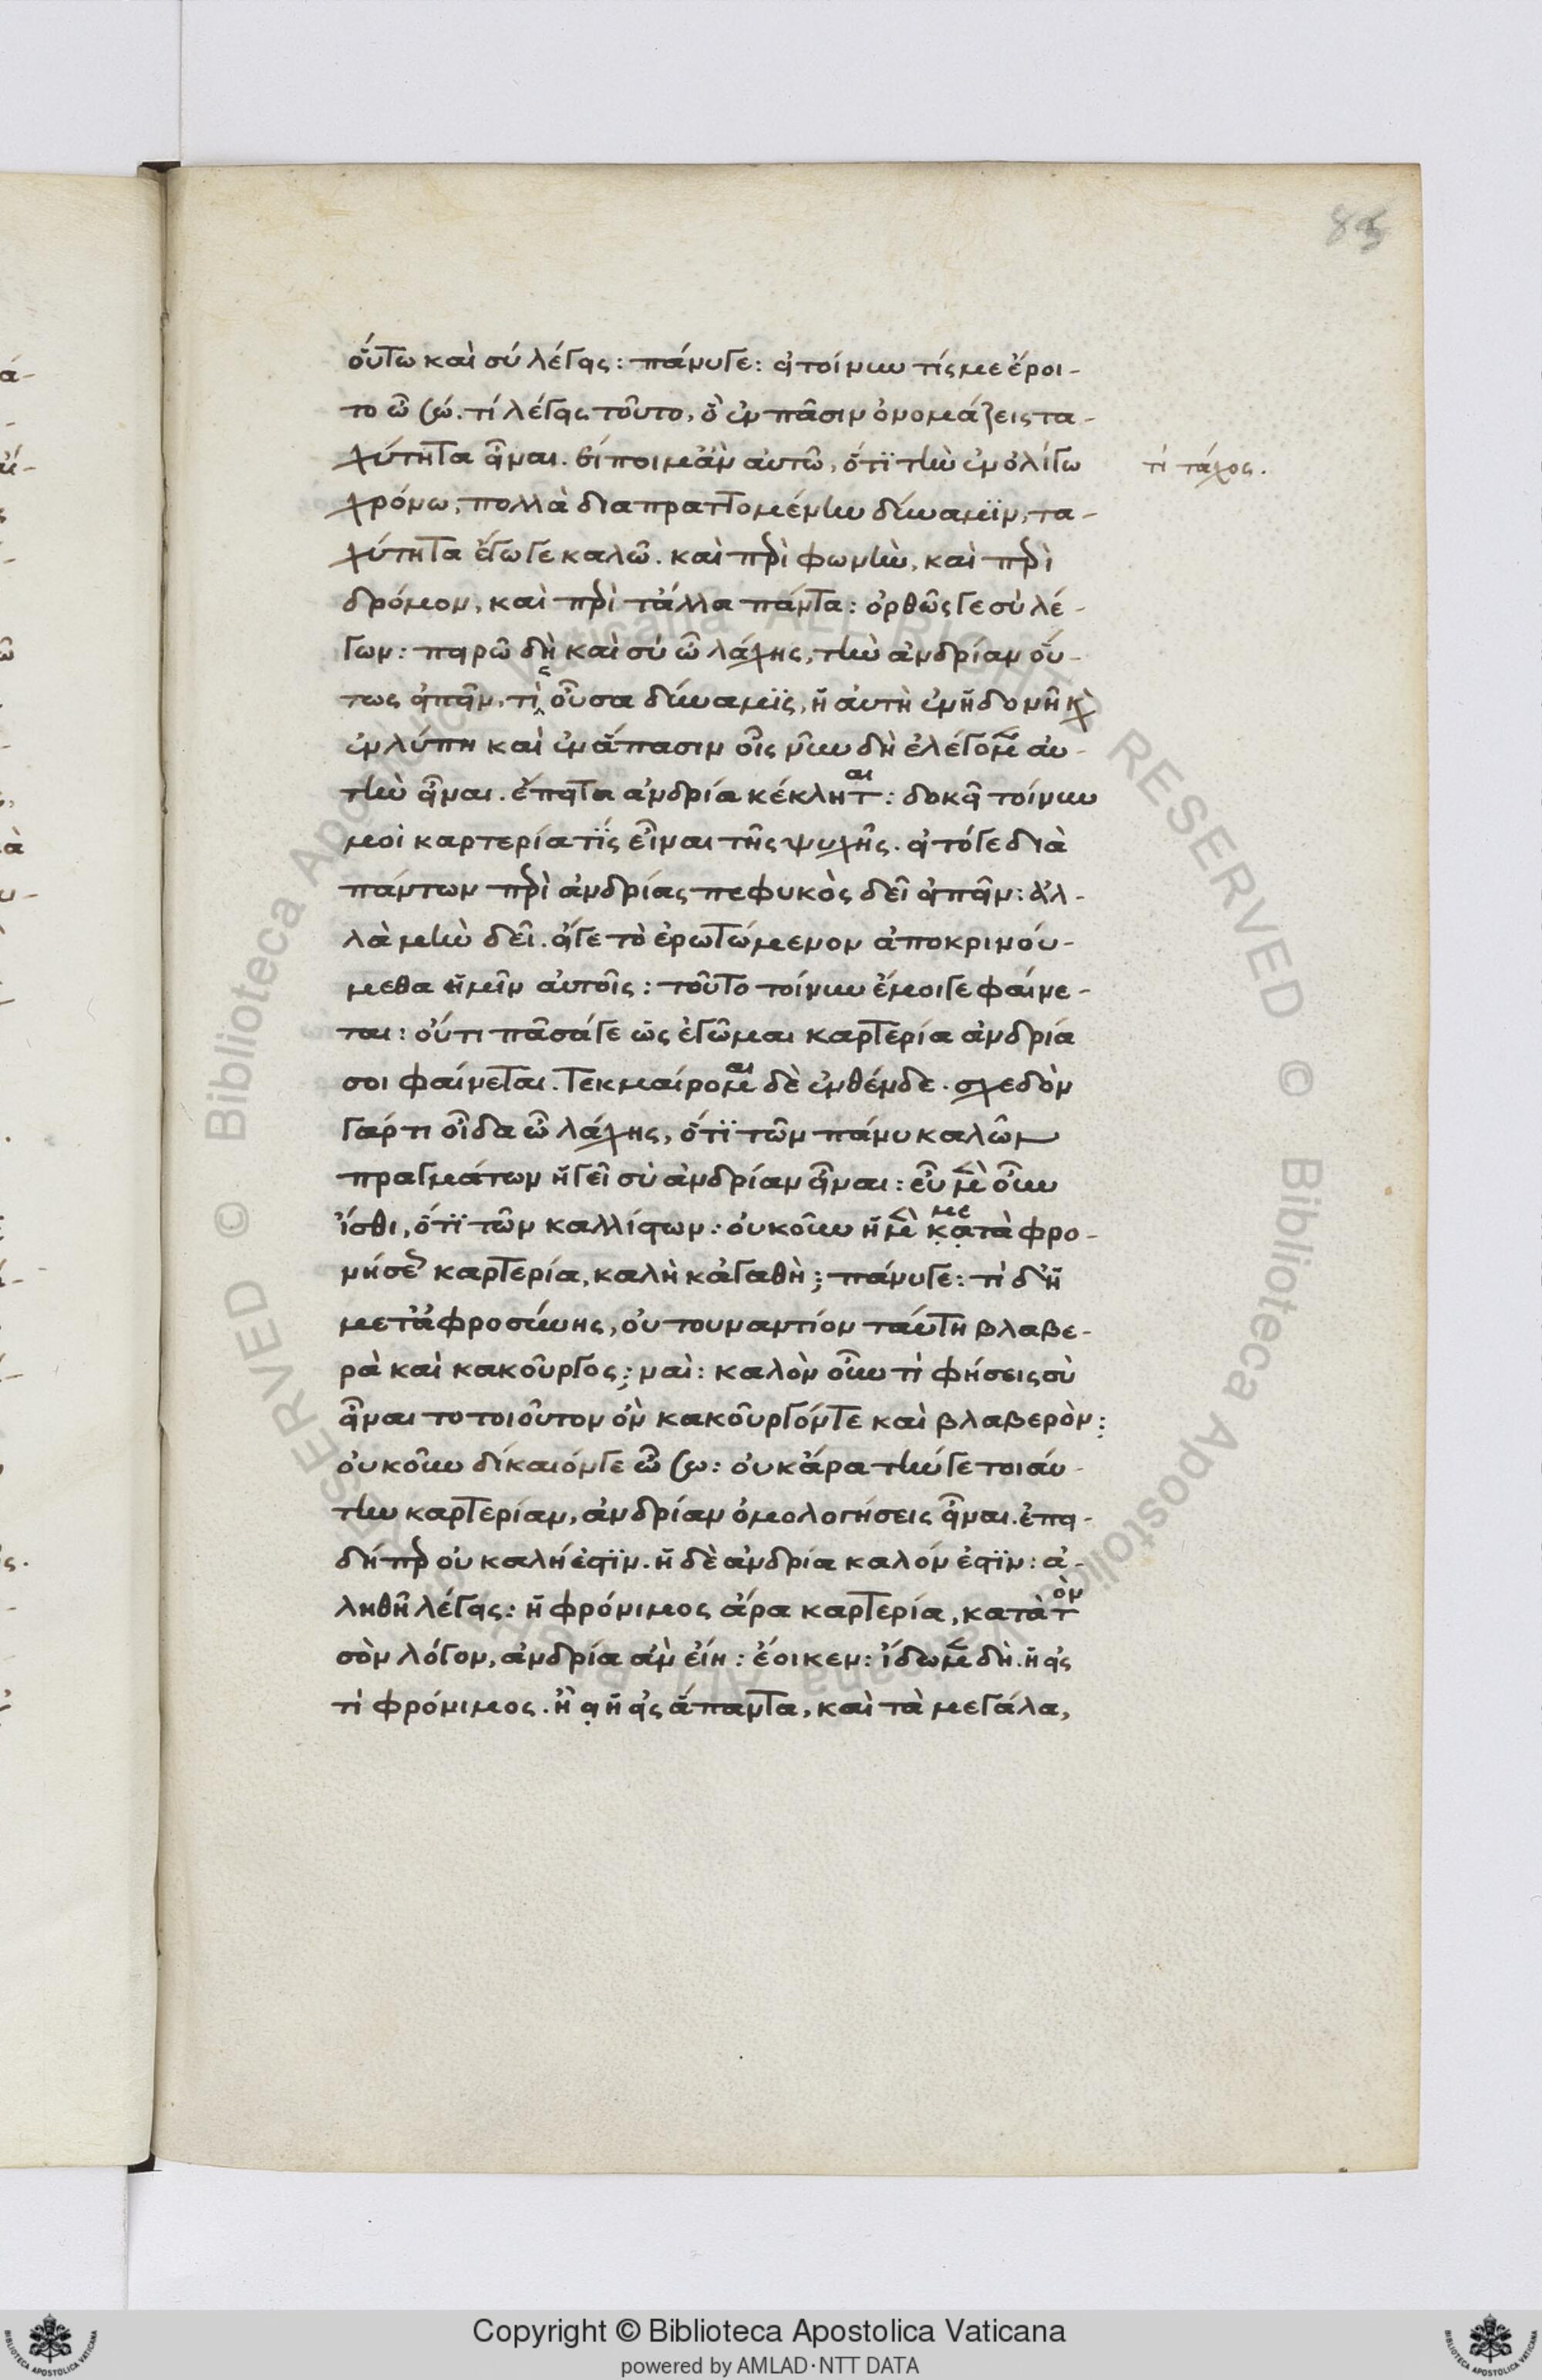 85
οὕτω καὶ σύ λέγεις: πάνυγε: εἰ τοίνυν τίς με ἔροι-
το ὦ σώ. τί λέγεις τοῦτο, ὃ ἐν πᾶσιν ὀνομάζεις τα-
χύτητα εἶναι. εἴποιμ' ἂν αὐτῶ, ὅτϊ τὴν ἐν ὀλίγω
τί τάχος.
χρόνω, πολλὰ διαπραττομένην δύναμϊν, τα-
χύτητα ἔγωγε καλῶ. καὶ περὶ φωνὴν, καὶ περὶ
δρόμον, καὶ περὶ τἄλλα πάντα: ὀρθῶς γε σὺ λέ-
γων: πειρῶ δὴ καὶ σύ ὦ λάχης, τὴν ἀνδρίαν οὕ-
τως εἰπεῖν, τὶς οὖσα δύναμϊς, ἡ αὐτὴ ἐν ἡδονῆ κὶ
ἐν λύπη καὶ ἐν ἅπασιν οἷς νῦν δὴ ἐλέγομεν αὐ-
τὴν εἶναι. ἔπειτα ἀνδρία κέκληται: δοκεῖ τοίνυν
μοὶ καρτερία τϊς εἶναι τῆς ψυχῆς. εἰ τόγε διὰ
πάντων περὶ ἀνδρίας πεφυκὸς δεῖ εἰπεῖν: ἀλ-
λὰ μὴν δεῖ. εἴγε τὸ ἐρωτώμενον ἀποκρινού-
μεθα ἡμῖν αὐτοῖς: τοῦτο τοίνυν ἔμοιγε φαίνε-
ται: οὔτι πᾶσάγε ὡς ἐγῶμαι καρτερία ἀνδρία
σοι φαίνεται. τεκμαίρομαι δὲ ἐνθένδε. σχεδὸν
γάρ τι οἶδα ὦ λάχης, ὅτϊ τῶν πάνυ καλῶν
πραγμάτων ἡγεῖ σὺ ἀνδρίαν εἶναι: εὖ μὲν οὖν
ἴσθι, ὅτϊ τῶν καλλίστων: οὐκοῦν ἡ μὲν μετὰ φρο-
νήσεως καρτερία, καλὴ κἀγαθὴ; πάνυγε: τὶ δ' ἡ
μετ' ἀφροσύνης, οὐ τουναντίον ταύτη βλαβε-
ρὰ καὶ κακοῦργος; ναὶ: καλὸν οὖν τὶ φήσεις σὺ
εἶναι το τοιοῦτον ὂν κακοῦργόντε καὶ βλαβερὸν;
οὐκοῦν δίκαιόνγε ὦ σω: οὐκ ἄρα τήνγε τοιαύ-
την καρτερίαν, ἀνδρίαν ὁμολογήσεις εἶναι. ἐπει-
δήπερ οὐ καλή ἐστϊν. ἡ δὲ ἀνδρία καλόν ἐστϊν: ἀ-
ληθῆ λέγεις: ἡ φρόνιμος ἄρα καρτερία, κατὰ τὸν
σὸν λόγον, ἀνδρία ἂν εἴη: ἔοικεν: ἴδωμεν δὴ. ἡ εἰς
τὶ φρόνιμος. ἢ ει ἡ εἰς ἅπαντα, καὶ τὰ μεγάλα,
Copyright © Biblioteca Apostolica Vaticana
powered by AMLAD·NTT DATA